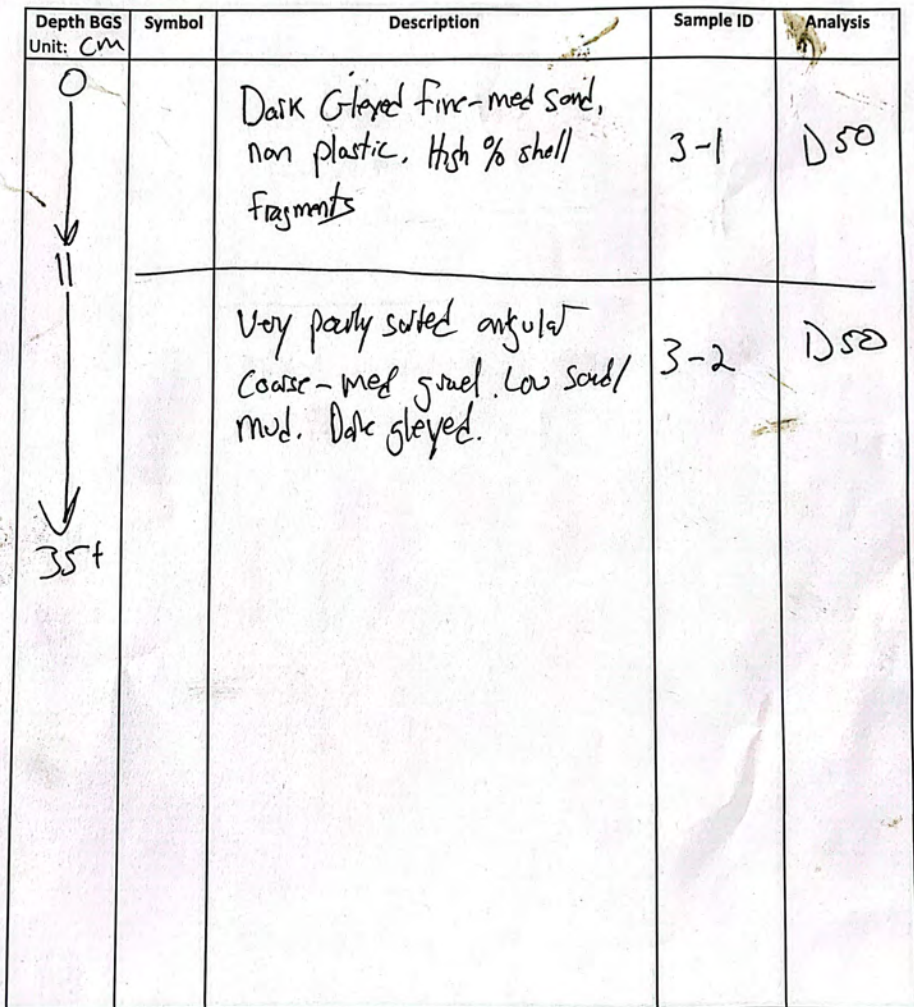 Depth BGS Symbol Description Sample ID Analysis
Unit: CM
0
Dark Gleyed fine-med sand,
non plastic. High % shell
fragments
3-1 D50
11
Very poorly sorted angular
Coarse-med gravel. Low sand/
mud. Dark gleyed.
3-2 D50
35+